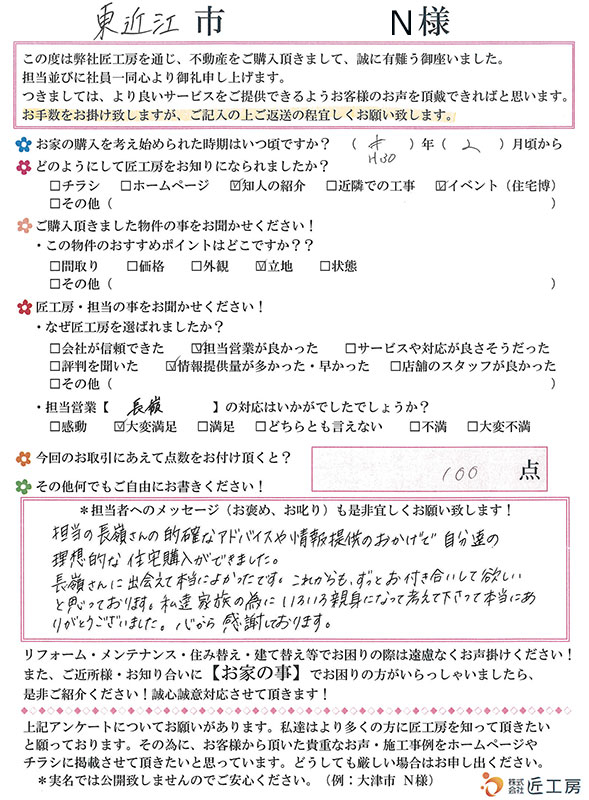 東近江市 N様
この度は弊社匠工房を通じ、不動産をご購入頂きまして、誠に有難う御座いました。
担当並びに社員一同心より御礼申し上げます。
つきましては、より良いサービスをご提供できるようお客様のお声を頂戴できればと思います。
お手数をお掛け致しますが、ご記入の上ご返送の程宜しくお願い致します。
お家の購入を考え始められた時期はいつ頃ですか？ （ H30 ）年（ 2 ）月頃から
どのようにして匠工房をお知りになられましたか？
□チラシ □ホームページ ☑知人の紹介 □近隣での工事 ☑イベント（住宅博）
□その他（ ）
ご購入頂きました物件の事をお聞かせください！
・この物件のおすすめポイントはどこですか？？
□間取り □価格 □外観 ☑立地 □状態
□その他（ ）
匠工房・担当の事をお聞かせください！
・なぜ匠工房を選ばれましたか？
□会社が信頼できた ☑担当営業が良かった □サービスや対応が良さそうだった
□評判を聞いた ☑情報提供量が多かった・早かった □店舗のスタッフが良かった
□その他（ ）
・担当営業【 長嶺 】の対応はいかがでしたでしょうか？
□感動 ☑大変満足 □満足 □どちらとも言えない □不満 □大変不満
今回のお取引にあえて点数をお付け頂くと？ 100 点
その他何でもご自由にお書きください！
＊担当者へのメッセージ（お褒め、お叱り）も是非宜しくお願い致します！
担当の長嶺さんの的確なアドバイスや情報提供のおかげで自分達の
理想的な住宅購入ができました。
長嶺さんに出会えて本当によかったです。これからも、ずっとお付き合いして欲しい
と思っております。私達家族の為にいろいろ親身になって考えて下さって本当にあ
りがとうございました。心から感謝しております。
リフォーム・メンテナンス・住み替え・建て替え等でお困りの際は遠慮なくお声掛けください！
また、ご近所様・お知り合いに【お家の事】でお困りの方がいらっしゃいましたら、
是非ご紹介ください！誠心誠意対応させて頂きます！
上記アンケートについてお願いがあります。私達はより多くの方に匠工房を知って頂きたい
と願っております。その為に、お客様から頂いた貴重なお声・施工事例をホームページや
チラシに掲載させて頂きたいと思っています。どうしても厳しい場合はお申し出ください。
＊実名では公開致しませんのでご安心ください。（例：大津市 N様）
株式会社 匠工房